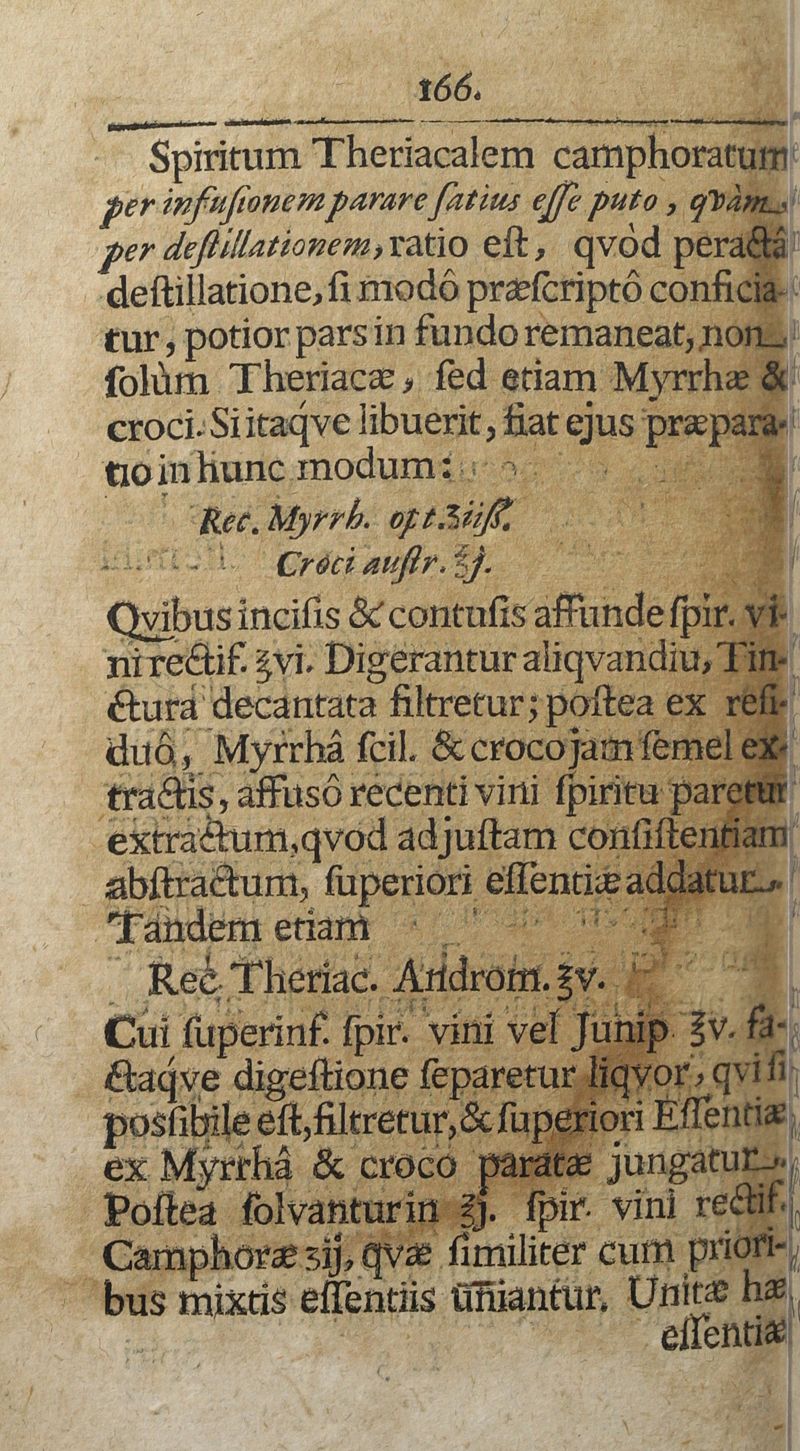 166.
Spiritum Theriacalem camphoratum
per infuſionem parare ſatius eſſe puto, qvàm
per deſtillationem, ratio eſt, qvòd peractâ
deſtillatione, ſi modô præſcriptô conficia-
tur, potior pars in fundo remaneat, non
ſolùm Theriacæ, ſed etiam Myrrhæ &
croci. Si itaqve libuerit, fiat ejus præpara-
tio in hunc modum:
Rec. Myrrh. opt. ℥iiß.
Croci auſtr. ℥j.
Qvibus inciſis & contuſis affunde ſpir. vi-
ni rectif. ℥vi. Digerantur aliqvandiu, Tin-
ctura decantata filtretur; poſtea ex reſi-
duô, Myrrhâ ſcil. & croco jam ſemel ex-
tractis, affusô recenti vini ſpiritu paretur
extractum, qvod ad juſtam conſiſtentiam
abſtractum, ſuperiori eſſentiæ addatur.
Tandem etiam
Rec. Theriac. Androm. ℥v.
Cui ſuperinf. ſpir. vini vel Junip. ℥v. fa-
ctaqve digeſtione ſeparetur liqvor, qvi ſi
posſibile eſt, filtretur, & ſuperiori Eſſentiæ
ex Myrrhâ & croco paratæ jungatur.
Poſtea ſolvantur in ℥j. ſpir. vini rectif.
Camphoræ ʒij, qvæ ſimiliter cum priori-
bus mixtis eſſentiis uniantur, Unitæ hæ
eſſentiæ